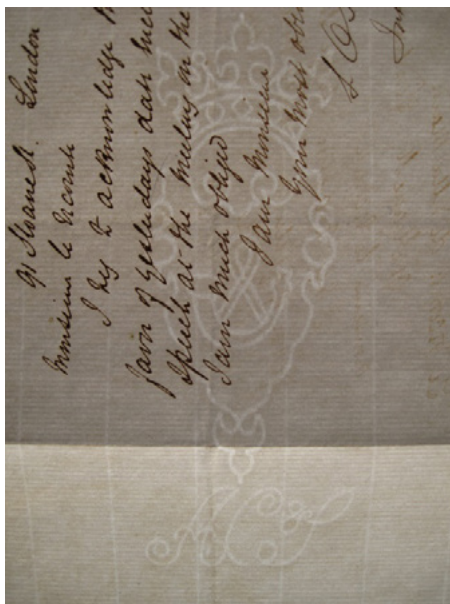 91 Sloane St. London
Monsieur le Vicomte
I beg to acknowledge
favor of yesterdays date
speech at the meeting in the
I am much obliged
I am Monsieur
Your most